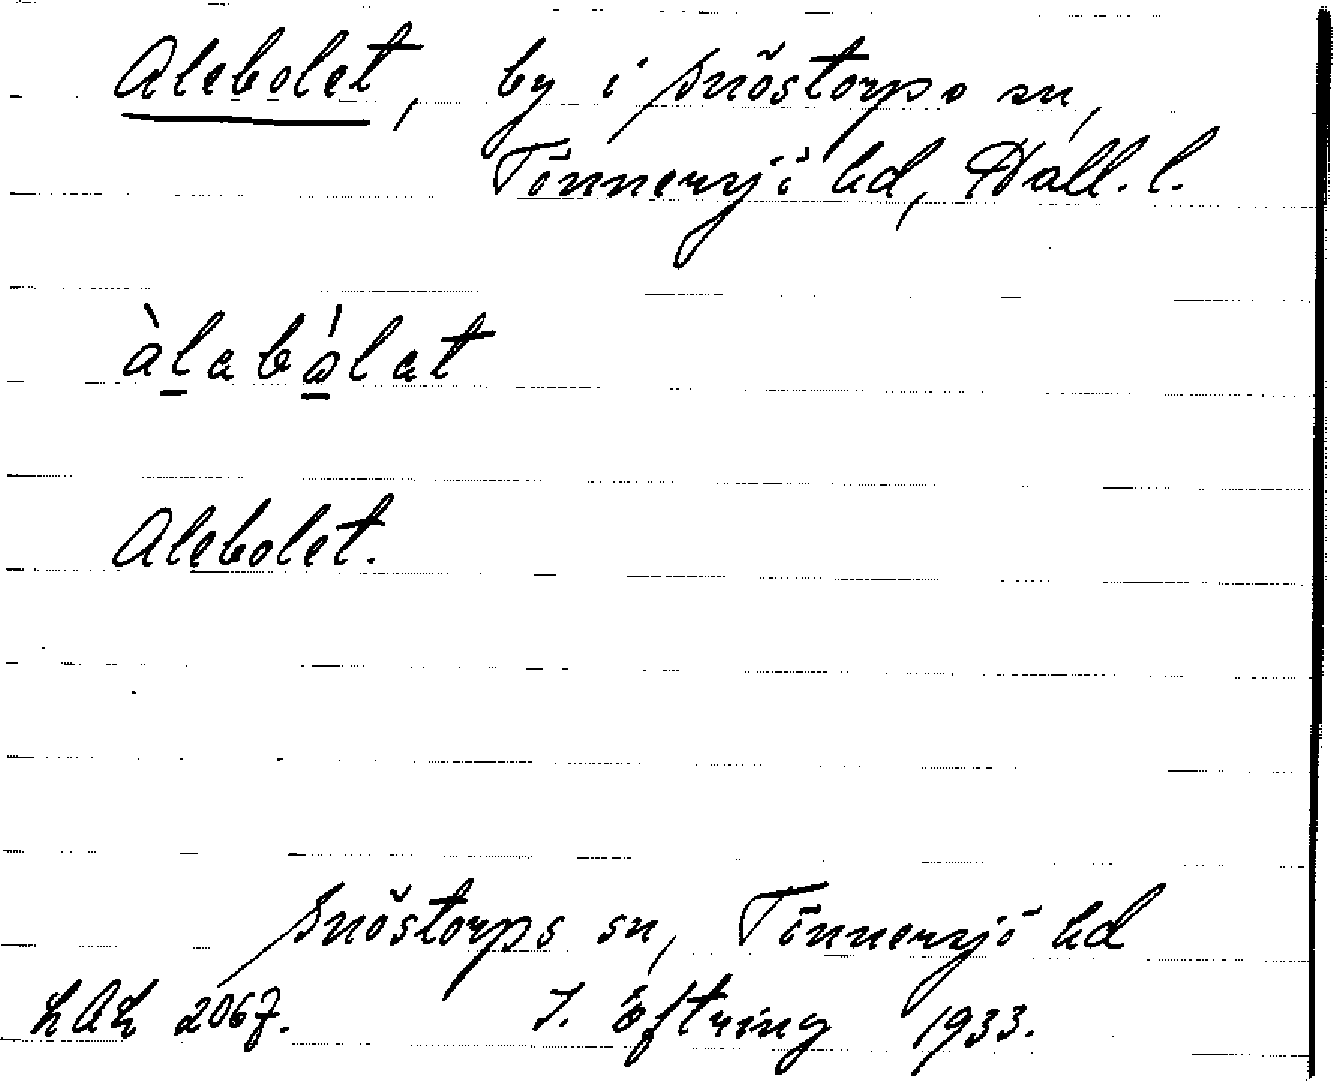 Alebolet, by i Snöstorps sn,
Tönnersjö hd, Hall. l.
àlabålat
Alebolet.
Snöstorps sn, Tönnersjö hd
LAL 2067. I. Eftring 1933.